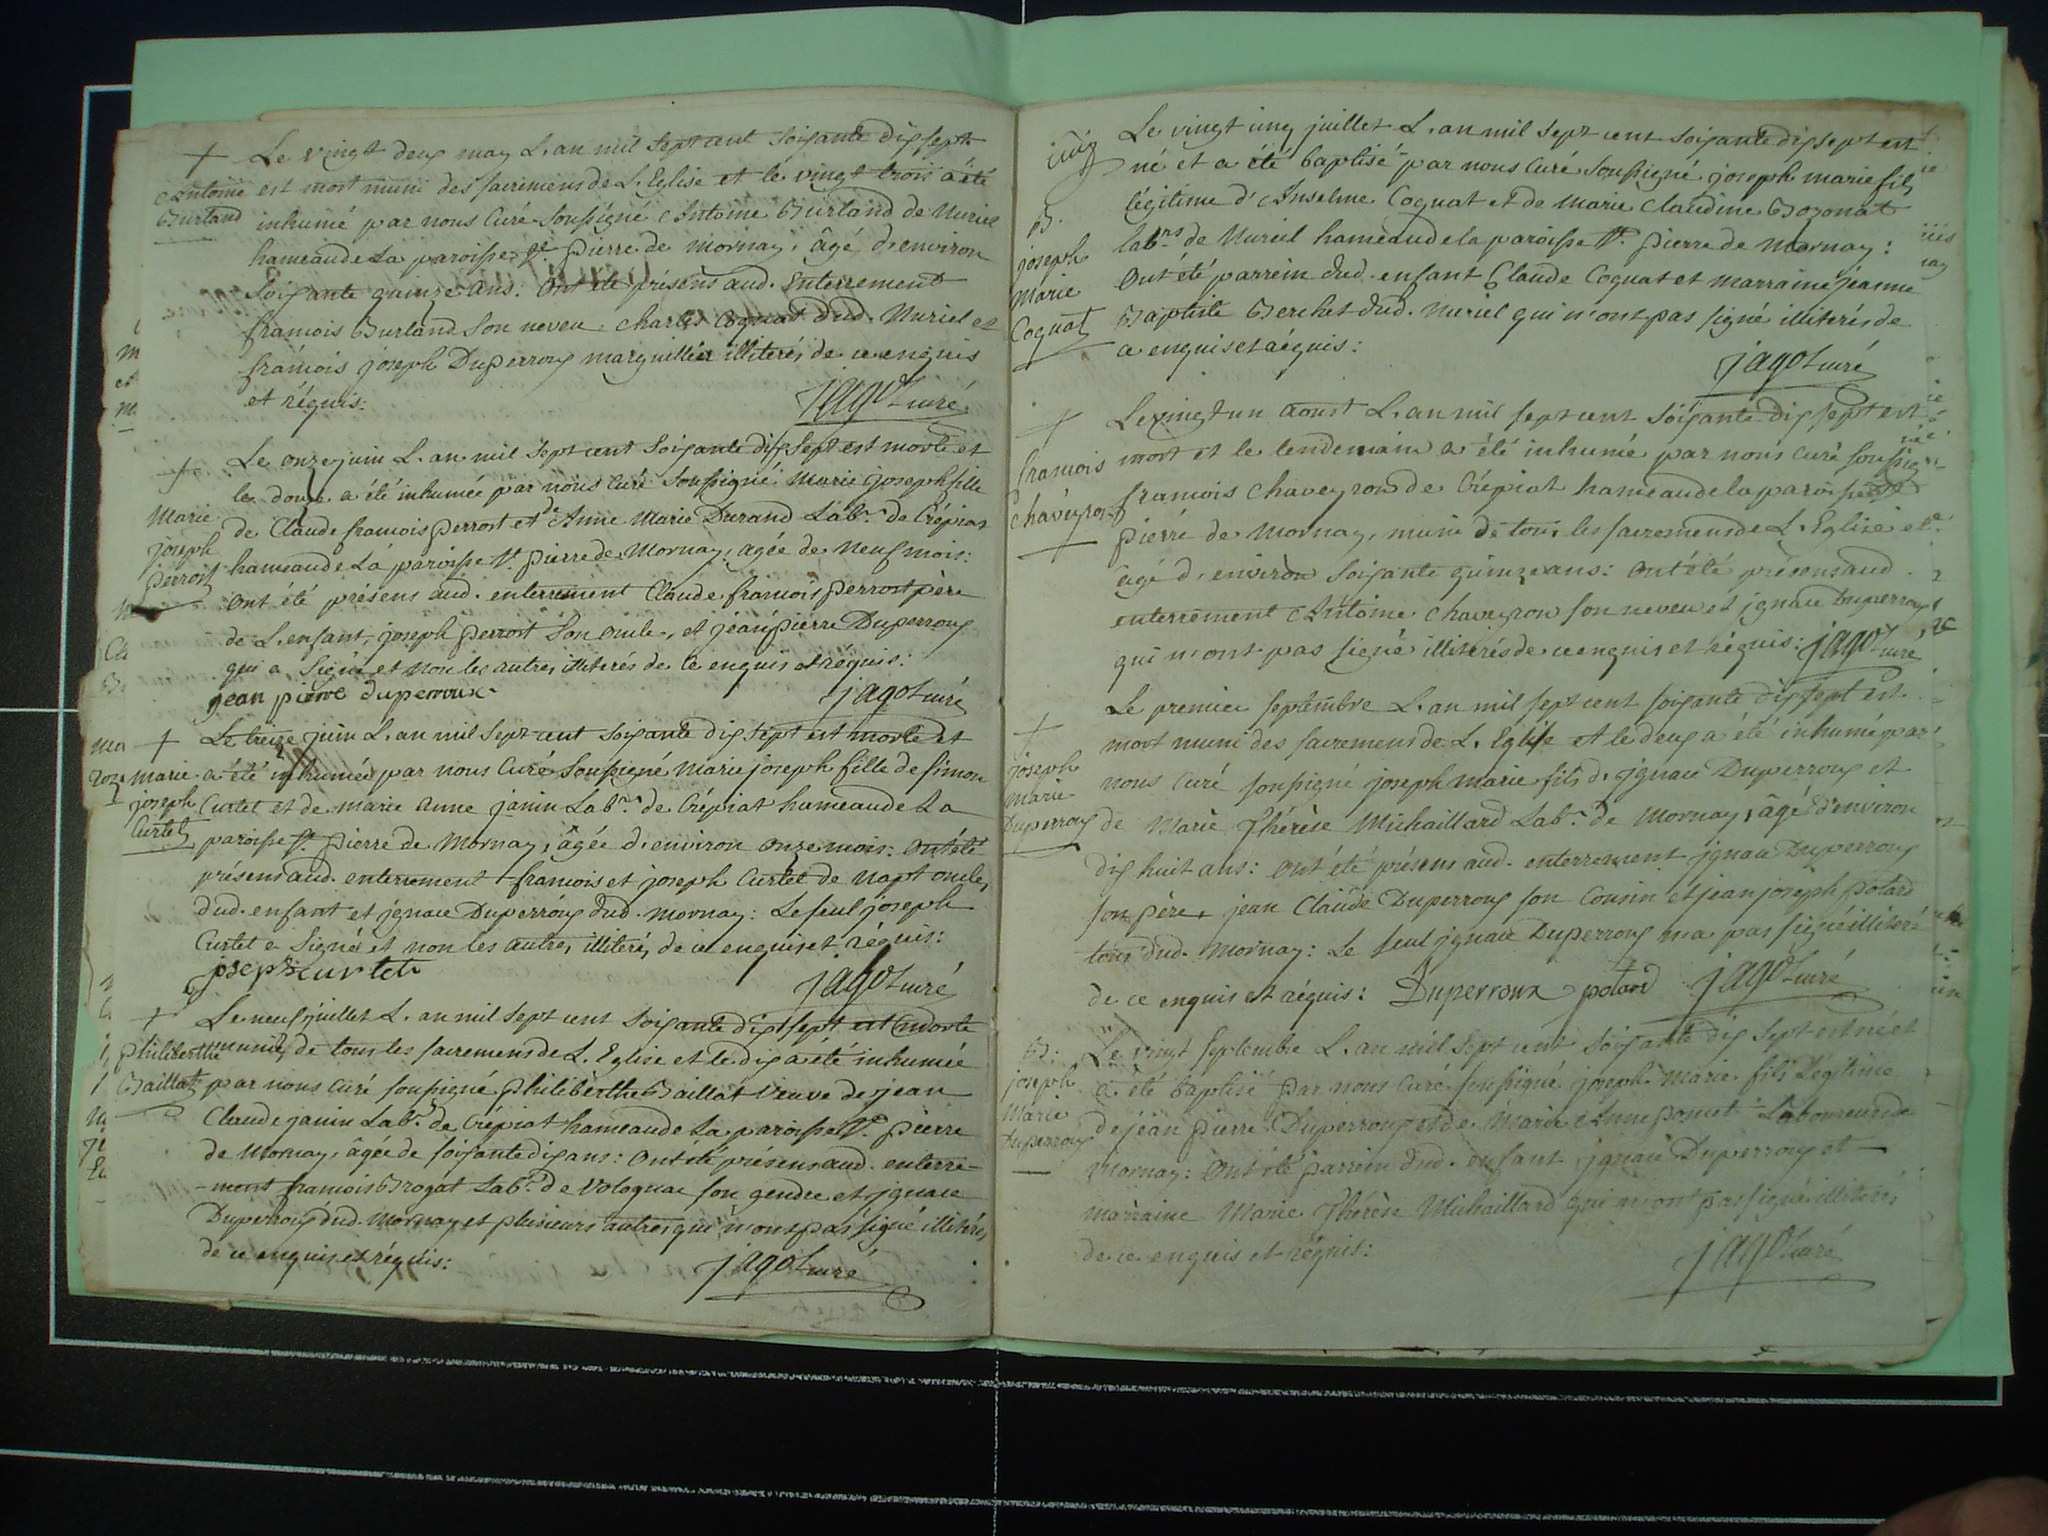 + Le vingt deux may L'an mil sept cent soixante dix sept
Antoine Burland
est mort muni des sacremens de L'Eglise et le vingt trois a été
inhumé par nous Curé soussigné Antoine Burland de Nuriel
hameau de La paroisse St. pierre de mornay, âgé d'environ
soixante quinze ans: Ont été présens aud. Enterrement
francois Burland son neveu, charles Coquat dud. Nuriel et
francois joseph Duperroux marguillier illiterés de ce enquis
et réquis:
jagot curé
+ Le onze juin L'an mil sept cent soixante dix sept est morte et
Marie joseph perrost
le douze a été inhumée par nous Curé soussigné Marie joseph fille
de Claude francois perrost et de Anne Marie Durand Labrs. de Crépiat
hameau de La paroisse St. pierre de Mornay, agée de neuf mois:
Ont été présens aud. enterrement Claude francois perrost père
de L'enfant, joseph perrost son oncle, et jean pierre Duperroux
qui a signé et non les autres illiterés de ce enquis et réquis:
jean pierre duperroux
jagot curé
+ Le treize juin L'an mil sept cent soixante dix sept est morte et
marie joseph Curtet
a été inhumée par nous Curé soussigné Marie joseph fille de simon
Curtet et de marie anne janin Labrs. de Crépiat hameau de La
paroisse St. pierre de Mornay, âgée d'environ onze mois: Ont été
présens aud. enterrement francois et joseph Curtet de Napt oncles
dud. enfant et jgnace Duperroux dud. Mornay: Le seul joseph
Curtet a signé et non les autres illiterés de ce enquis et réquis:
joseph curtet
jagot curé
+ Le neuf juillet L'an mil sept cent soixante dix sept est morte
philiberthe Baillat
munie de tous les sacremens de L'Eglise et le dix a été inhumée
par nous Curé soussigné philiberthe Baillat veuve de jean
Claude janin Labr. de Crépiat hameau de La paroisse St. pierre
de Mornay, âgée de soixante dix ans: Ont été présens aud. enterre-
-ment francois Brogat Labr. de Volognat son gendre et jgnace
Duperroux dud. Mornay et plusieurs autres qui n'ont pas signé illiterés
de ce enquis et réquis:
jagot curé
Le vingt cinq juillet L'an mil sept cent soixante dix sept est
B. joseph Marie Coquat
né et a été baptisé par nous Curé soussigné joseph marie fils
légitime d'Anselme Coquat et de Marie Claudine Bozonat
labrs de Nuriel hameau de la paroisse St. pierre de Mornay:
Ont été parrein dud. enfant Claude Coquat et marraine jeanne
Baptiste Berchet dud. Nuriel qui n'ont pas signé illiterés de
ce enquis et réquis:
jagot curé
+ Le vingt un aoust L'an mil sept cent soixante dix sept est
francois Chaveyron
mort et le lendemain a été inhumé par nous curé soussigné
francois Chaveyron de Crépiat hameau de la paroisse St
pierre de Mornay, muni de tous les sacremens de L'Eglise et
âgé d'environ soixante quinze ans: Ont été présens aud.
enterrement Antoine chaveyron son neveu et jgnace Duperroux
qui n'ont pas signé illiterés de ce enquis et réquis: jagot curé
+ Le premier septembre L'an mil sept cent soixante dix sept est
joseph marie Duperroux
mort muni des sacremens de L'Eglise et le deux a été inhumé par
nous Curé soussigné joseph marie fils d'jgnace Duperroux et
de Marie Thérèse Michaillard Labrs. de Mornay, âgé d'environ
dix huit ans: Ont été présens aud. enterrement jgnace Duperroux
son père, jean Claude Duperroux son Cousin et jean joseph potard
tous dud. Mornay: Le seul jgnace Duperroux n'a pas signé illiteré
de ce enquis et réquis: Duperroux potard jagot curé
Le vingt septembre L'an mil sept cent soixante dix sept est né et
B: joseph Marie duperroux
a été baptisé par nous Curé soussigné joseph Marie fils Légitime
de jean pierre Duperroux et de Marie Anne poncet Laboureurs de
Mornay: Ont été parrein dud. enfant jgnace Duperroux et
marraine Marie Thérèse Michaillard qui n'ont pas signé illiterés
de ce enquis et réquis:
jagot curé